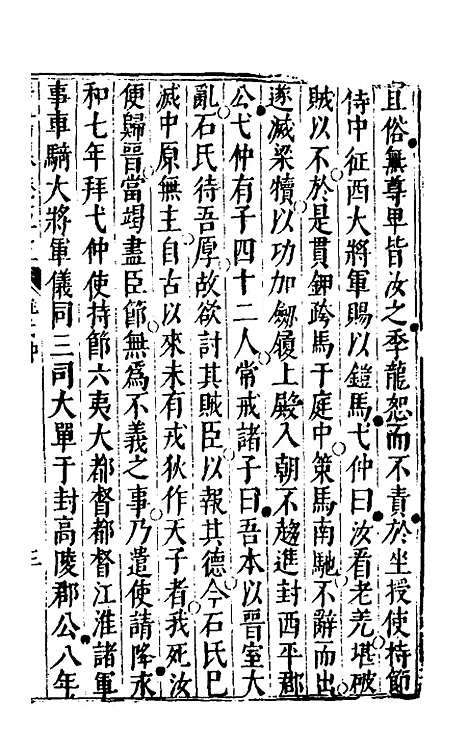 且俗無尊卑皆汝之季龍恕而不責於坐授使持節
侍中征西大將軍賜以鎧馬弋仲曰汝看老羌堪破
賊以不於是貫鉀跨馬于庭中策馬南馳不辭而出
遂滅梁犢以功加劒履上殿入朝不趨進封西平郡
公弋仲有子四十二人常戒諸子曰吾本以晉室大
亂石氏待吾厚故欲討其賊臣以報其德今石氏巳
滅中原無主自古以來未有戎狄作天子者我死汝
便歸晉當竭盡臣節無為不義之事乃遣使請降永
和七年拜弋仲使持節六夷大都督都督江淮諸軍
事車騎大將軍儀同三司大單于封高陵郡公八年